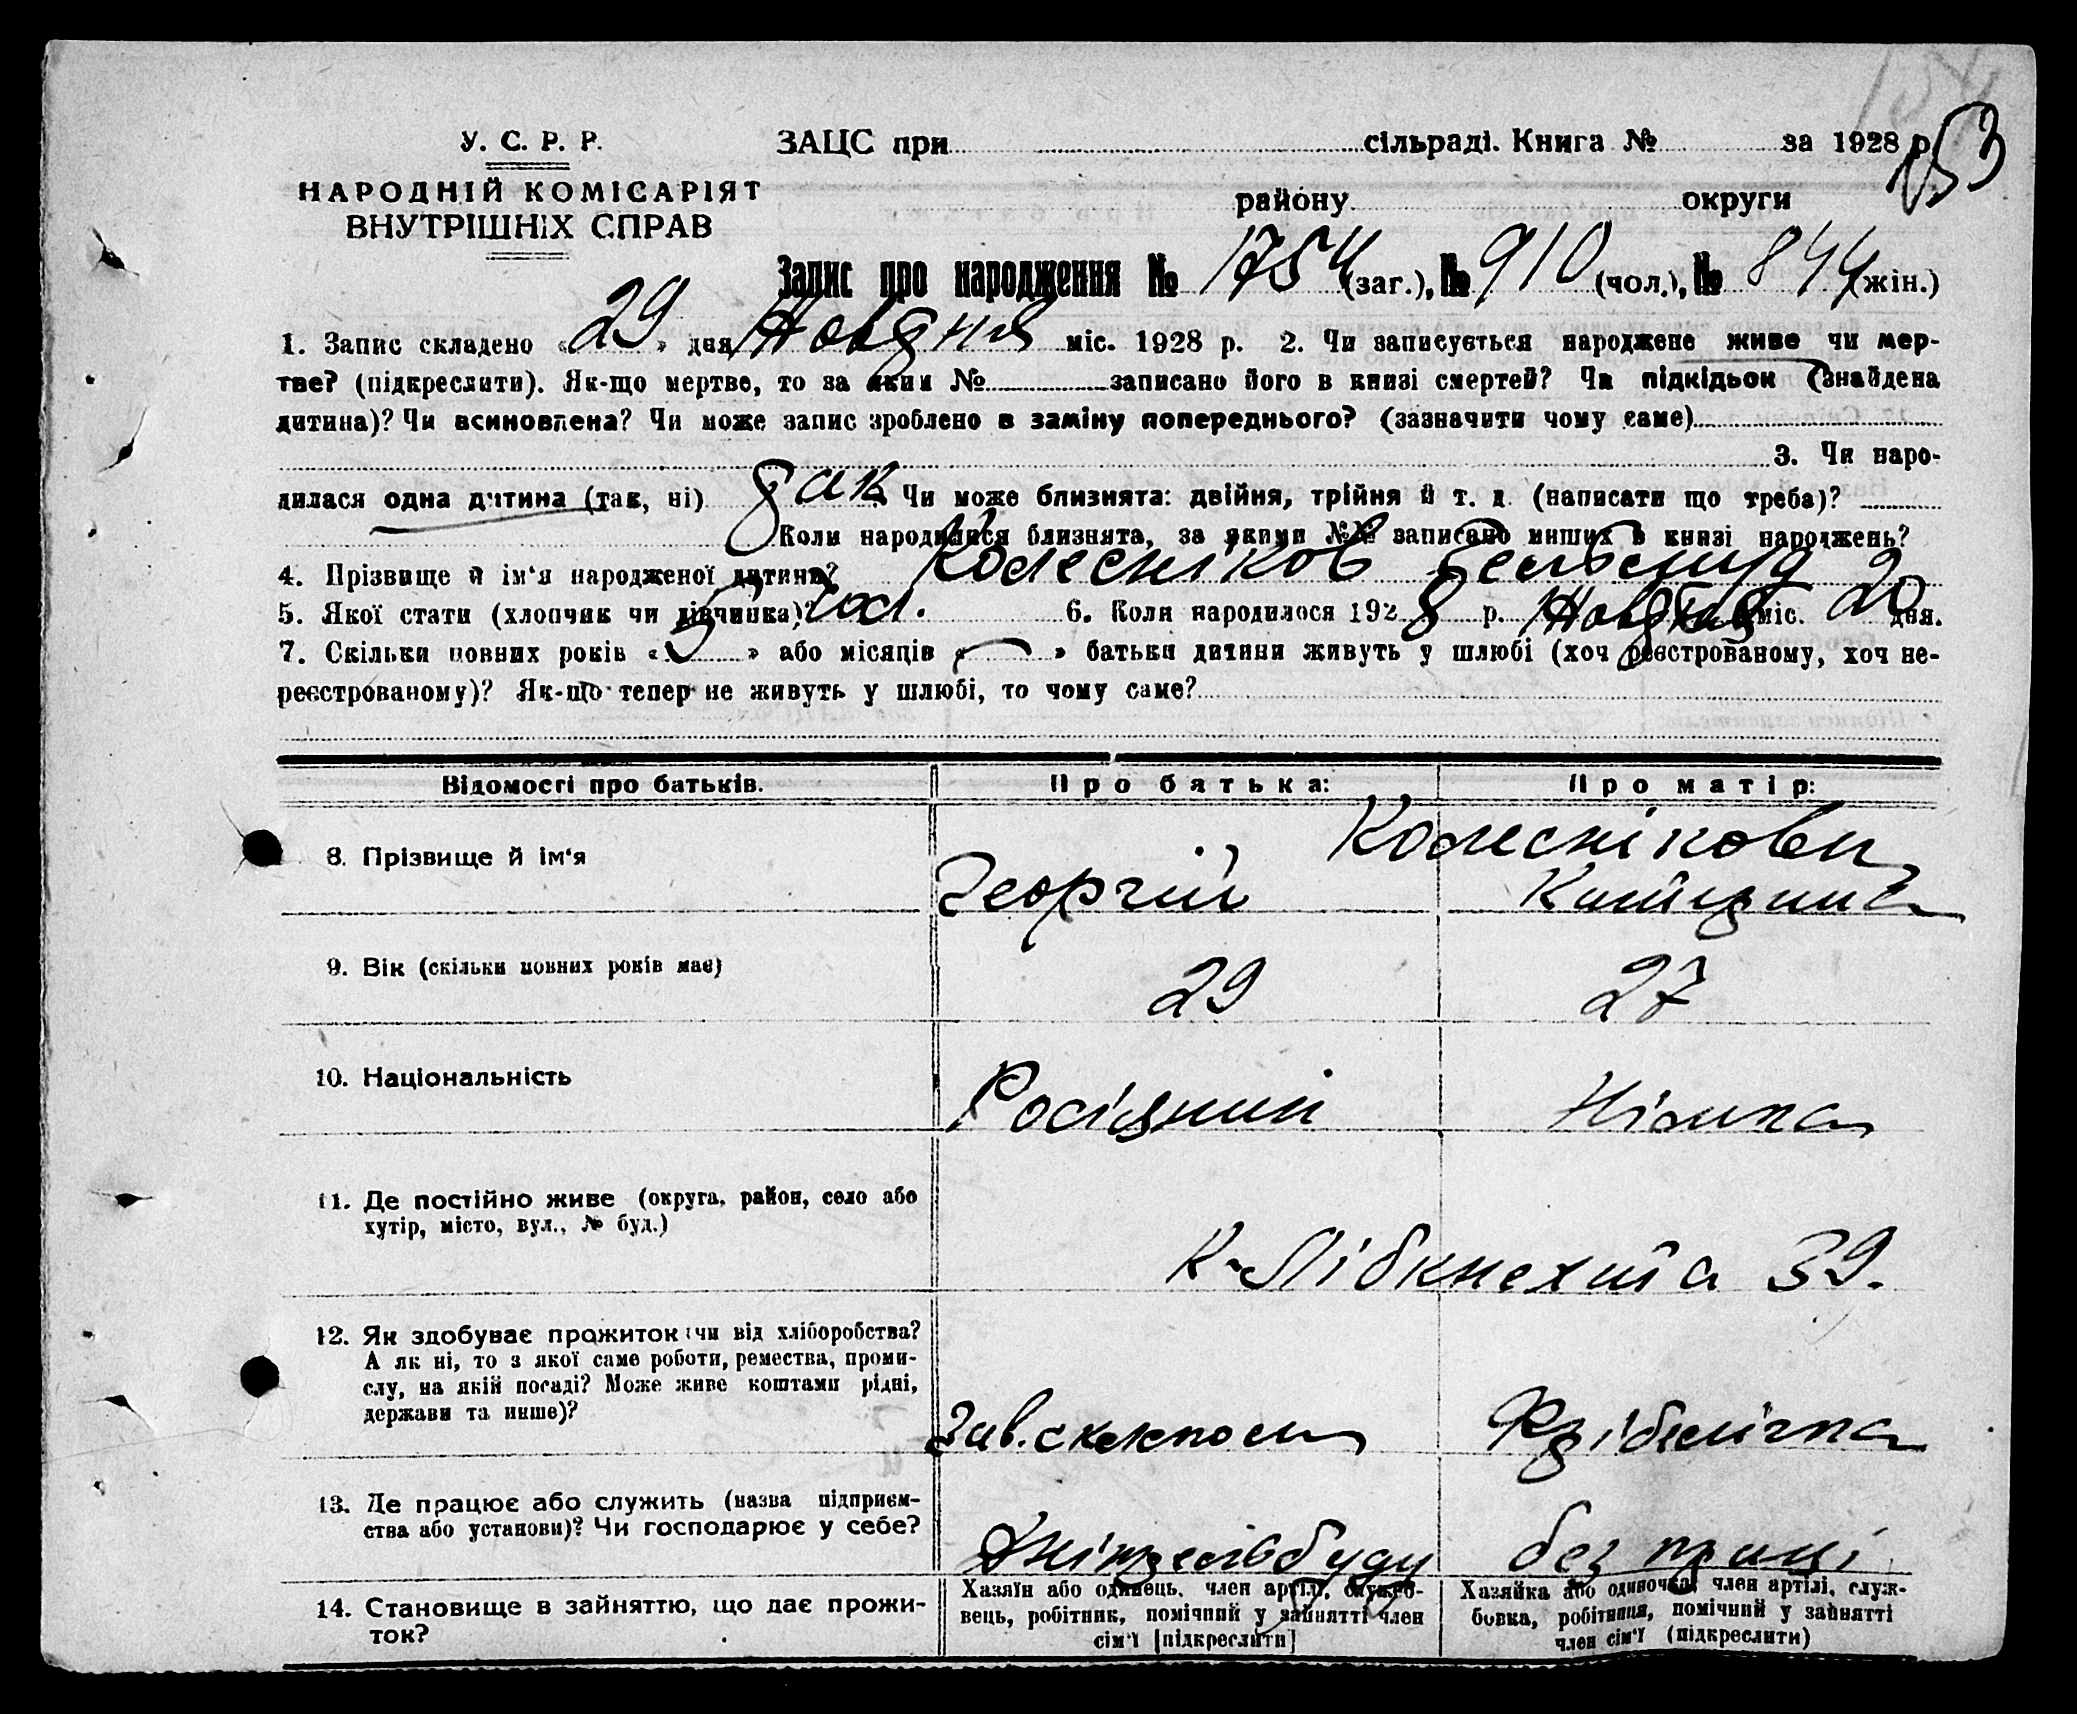 154
153
У. С. Р. Р.
НАРОДНІЙ КОМІСАРІЯТ
ВНУТРІШНІХ СПРАВ
ЗАЦС при сільраді. Книга № за 1928 р.
району округи
Запис про народження № 1754 (заг.), № 910 (чол.), № 844 (жін.)
1. Запис складено « 29 » дня міс. 1928 р. 2. Чи записується народжене живе чи мер-
тве? (підкреслити). Як-що мертве, то за яким № записано його в книзі смертей? Чи підкідьок (знайдена
дитина)? Чи всиновлена? Чи може запис зроблено в заміну попереднього? (зазначити чому саме)
3. Чи наро-
дилася одна дитина (так, ні) так Чи може близнята: двійня, трійня й т. д. (написати що треба)?
Коли народилися близнята, за якими №№ записано инших в книзі народжень?
4. Прізвище й ім'я народженої дитини? Колесніков
5. Якої стати (хлопчик чи дівчинка)? чол. 6. Коли народилося 192 8 р. міс. 20 дня.
7. Скільки повних років « 5 » або місяців « — » батьки дитини живуть у шлюбі (хоч реєстрованому, хоч не-
реєстрованому)? Як-що тепер не живуть у шлюбі, то чому саме?
Відомості про батьків. Про батька: Про матір:
Колеснікови
8. Прізвище й ім'я Георгій
9. Вік (скільки повних років має) 29 27
10. Національність Росіянин Німка
11. Де постійно живе (округа, район, село або
хутір, місто, вул., № буд.)
К-Лібкнехта 39.
12. Як здобуває прожиток: чи від хліборобства?
А як ні, то з якої саме роботи, ремества, проми-
слу, на якій посаді? Може живе коштами рідні,
держави та инше)?
Зав. складом
13. Де працює або служить (назва підприєм-
ства або установи)? Чи господарює у себе?
без праці
14. Становище в зайняттю, що дає прожи-
ток?
Хазяїн або одинець, член артілі, службо-
вець, робітник, помічний у зайнятті член
сім'ї [підкреслити]
Хазяйка або одиночка, член артілі, служ-
бовка, робітниця, помічний у зайнятті
член сім'ї (підкреслити)